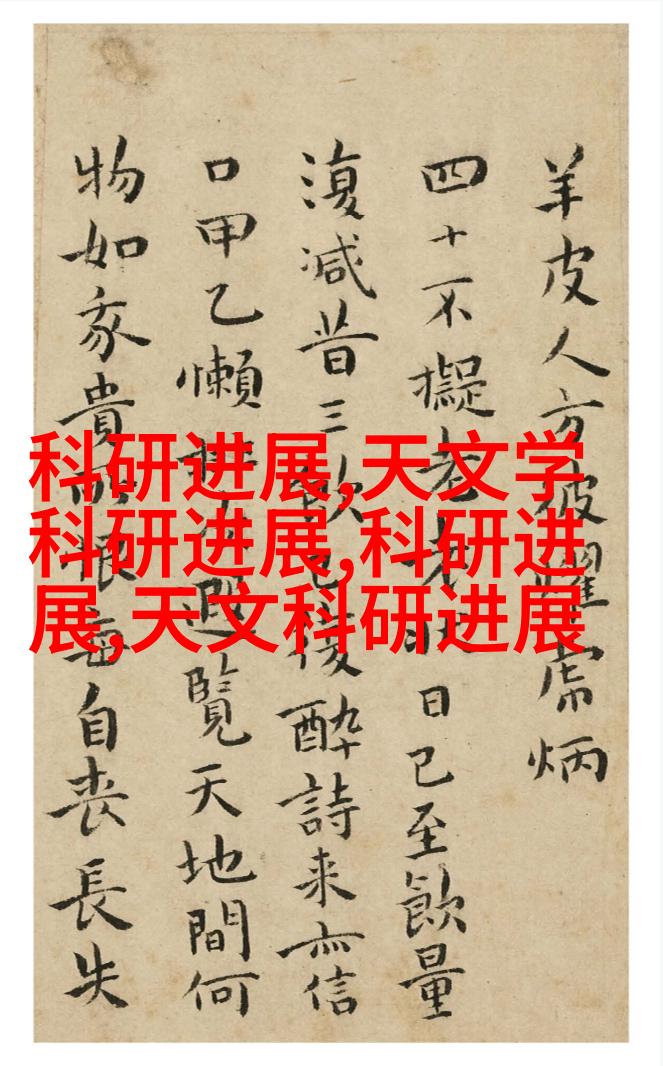 羊皮人方彼炳
四十不擬老老狀日已至飲量
復减昔三飲已後醉詩来亦信
口甲乙懶遐覽天地間何
物如貴恨自喪長失
科研进展,天文学
科研进展,科研进
展,天文科研进展